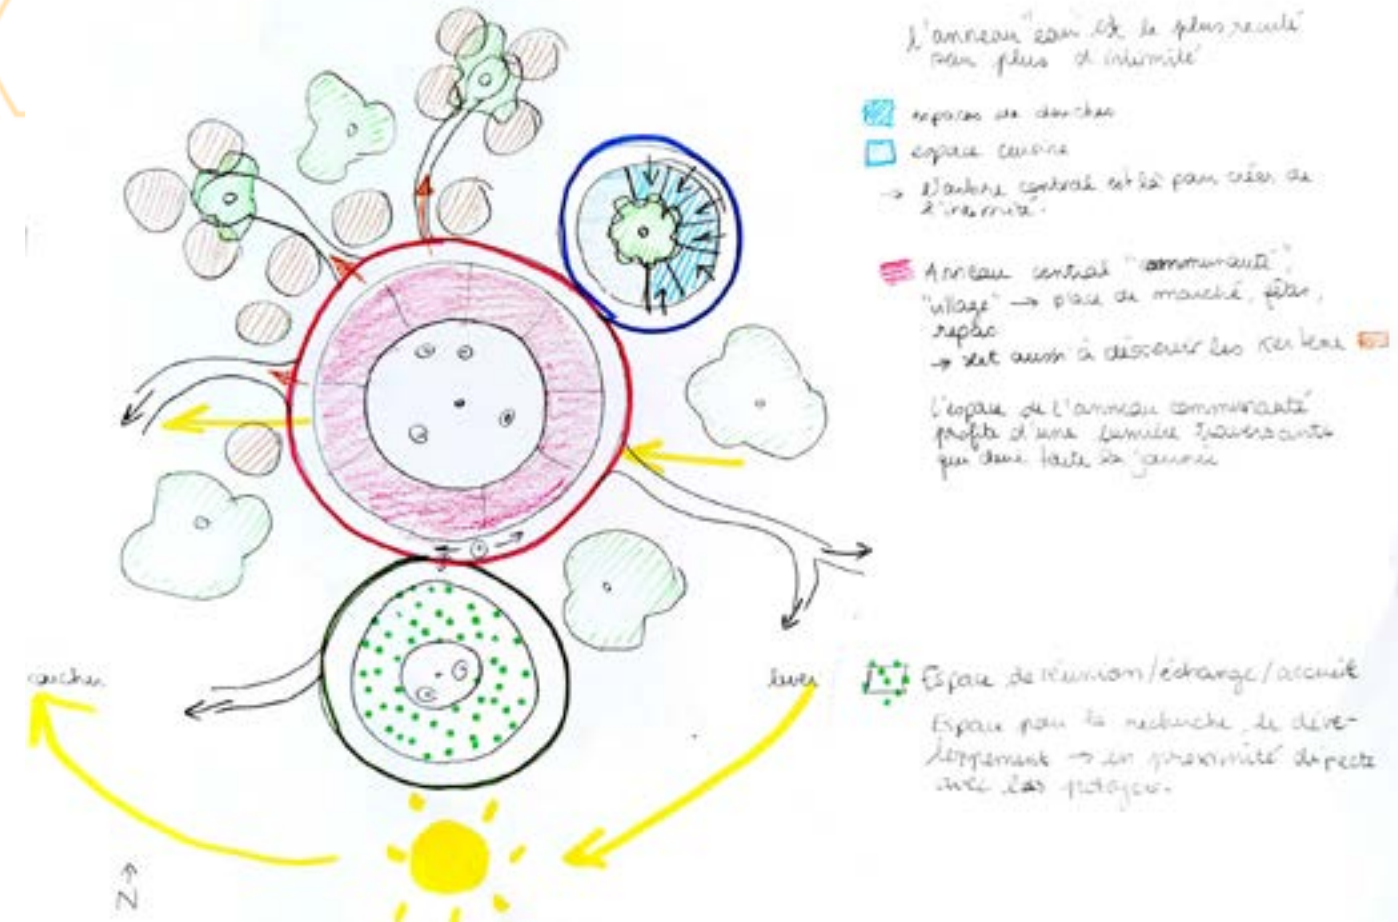 l'anneau "eau" est le plus reculé
pour plus d'intimité
espaces de douches
espace cuisine
→ L'arbre central est là pour créer de
l'intimité.
Anneau central "communauté",
"village" → place de marché, fêtes,
repas
→ sert aussi à désservir les
L'espace de l'anneau communauté
profite d'une lumière traversante
qui dure toute la journée
coucher
lever
Espace de réunion/échange/accueil
Espace pour la recherche, le déve-
loppement → en proximité directe
avec les potagers.
N